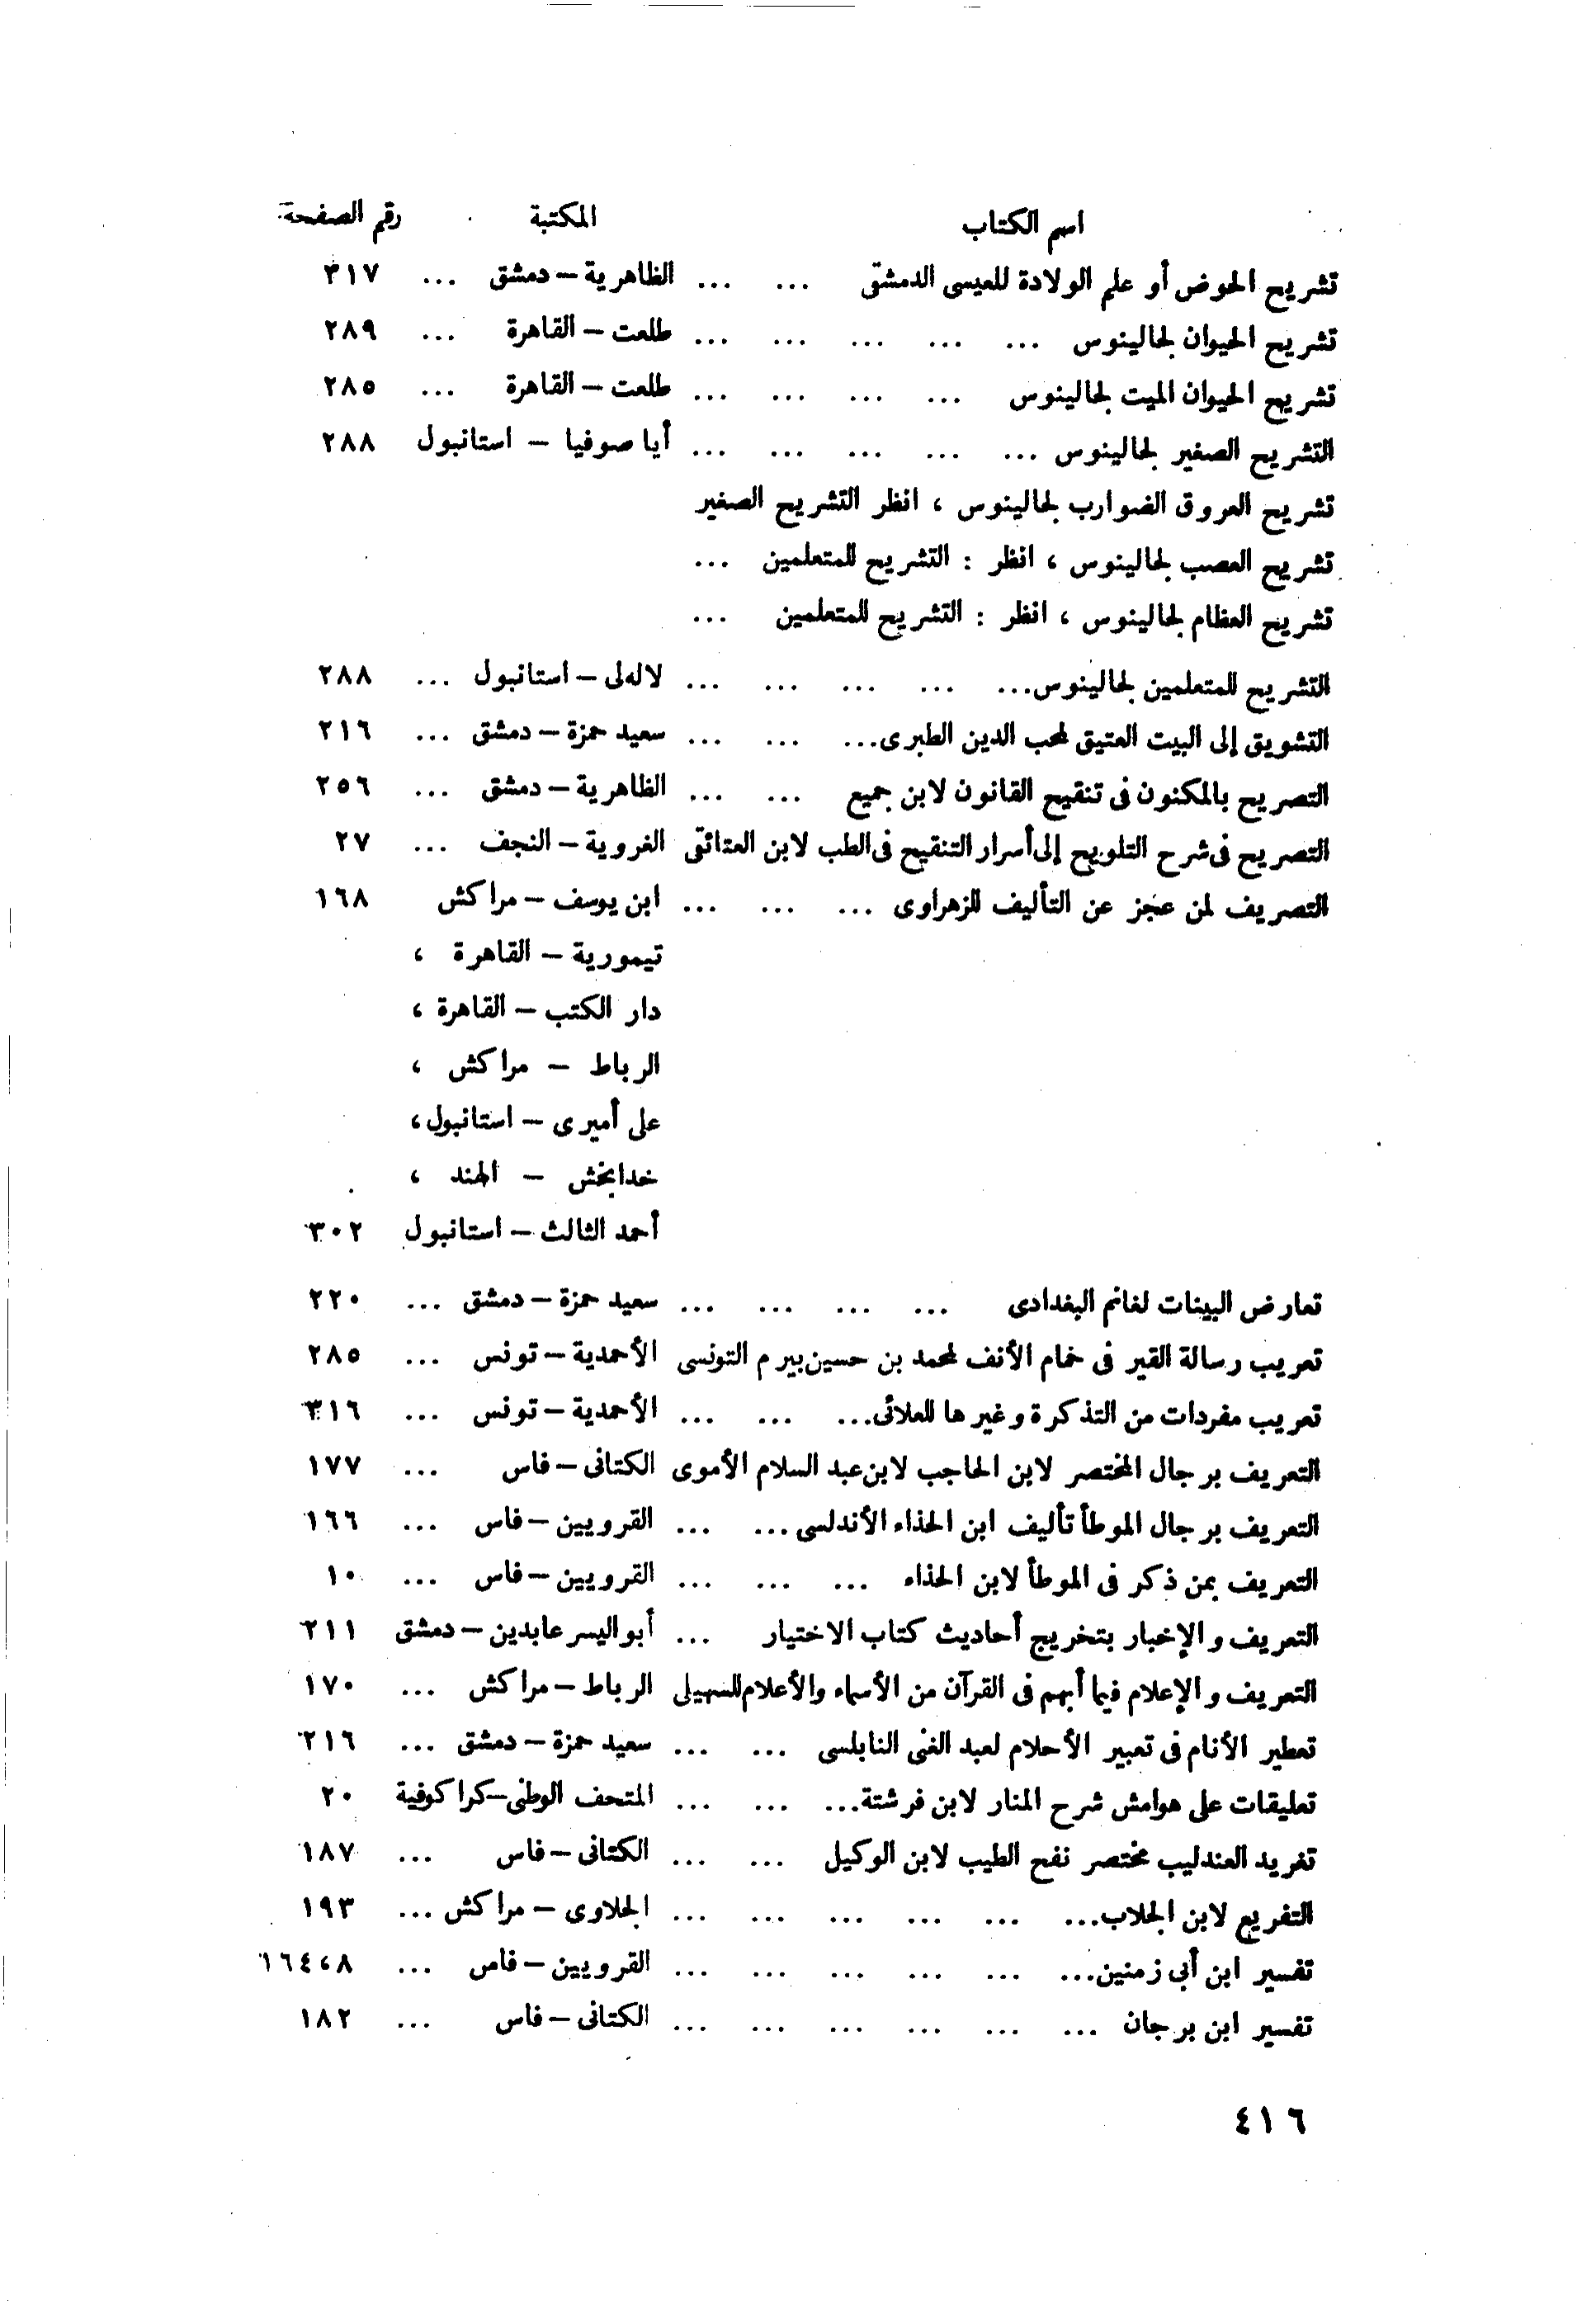 اسم الكتاب المكتبة رقم الصفحة
تشريح الحوض أو علم الولادة للعيسى الدمشقى ... ... الظاهرية – دمشق ... ٣١٧
تشريح الحيوان لجالينوس ... ... ... ... ... طلعت – القاهرة ... ٢٨٩
تشريح الحيوان الميت لجالينوس ... ... ... ... طلعت – القاهرة ... ٢٨٥
التشريح الصغير لجالينوس ... ... ... ... ... أيا صوفيا – استانبول ٢٨٨
تشريح العروق الضوارب لجالينوس ، انظر التشريح الصغير
تشريح العصب لجالينوس ، انظر : التشريح للمتعلمين ...
تشريح العظام لجالينوس ، انظر : التشريح للمتعلمين ...
التشريح للمتعلمين لجالينوس... ... ... ... ... لاله‌لى – استانبول ... ٢٨٨
التشويق إلى البيت العتيق لمحب الدين الطبرى... ... ... سعيد حمزة – دمشق ... ٢١٦
التصريح بالمكنون فى تنقيح القانون لابن جميع ... ... الظاهرية – دمشق ... ٢٥٦
التصريح فى شرح التلويح إلى أسرار التنقيح فى الطب لابن العتائقى الغروية – النجف ... ٢٧
التصريف لمن عجز عن التأليف للزهراوى ... ... ... ابن يوسف – مراكش ١٦٨
تيمورية – القاهرة ،
دار الكتب – القاهرة ،
الرباط – مراكش ،
على أميرى – استانبول ،
خدابخش – الهند ،
أحمد الثالث – استانبول ٣٠٢
تعارض البينات لغانم البغدادى ... ... ... ... سعيد حمزة – دمشق ... ٢٢٠
تعريب رسالة القير فى خمام الأنف لمحمد بن حسين بيرم التونسى الأحمدية – تونس ... ٢٨٥
تعريب مفردات من التذكرة وغيرها للعلائى... ... ... الأحمدية – تونس ... ٣١٦
التعريف برجال المختصر لابن الحاجب لابن عبد السلام الأموى الكتانى – فاس ... ١٧٧
التعريف برجال الموطأ تأليف ابن الحذاء الأندلسى ... ... القرويين – فاس ... ١٦٦
التعريف بمن ذكر فى الموطأ لابن الحذاء ... ... ... القرويين – فاس ... ١٠
التعريف والإخبار بتخريج أحاديث كتاب الاختيار ... أبو اليسر عابدين – دمشق ٢١١
التعريف والإعلام فيما أبهم فى القرآن من الأسماء والأعلام للسهيلى الرباط – مراكش ... ١٧٠
تعطير الأنام فى تعبير الأحلام لعبد الغنى النابلسى ... ... سعيد حمزة – دمشق ... ٢١٦
تعليقات على هوامش شرح المنار لابن فرشتة... ... ... المتحف الوطنى – كراكوفية ٢٠
تغريد العندليب مختصر نفح الطيب لابن الوكيل ... ... الكتانى – فاس ... ١٨٧
التفريع لابن الجلاب... ... ... ... ... ... الجلاوى – مراكش ... ١٩٣
تفسير ابن أبى زمنين... ... ... ... ... ... القرويين – فاس ... ٨ ، ١٦٤
تفسير ابن برجان ... ... ... ... ... ... الكتانى – فاس ... ١٨٢
٤١٦